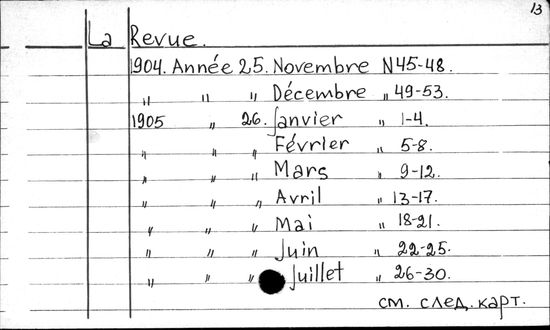 13
La Revue.
1904. Année 25. Novembre N 45-48.
" " " Décembre " 49-53.
1905 " 26. Janvier " 1-4.
" " " Février " 5-8.
" " " Mars " 9-12.
" " " Avril " 13-17.
" " " Mai " 18-21.
" " " Juin " 22-25.
" " " Juillet " 26-30.
см. след. карт.